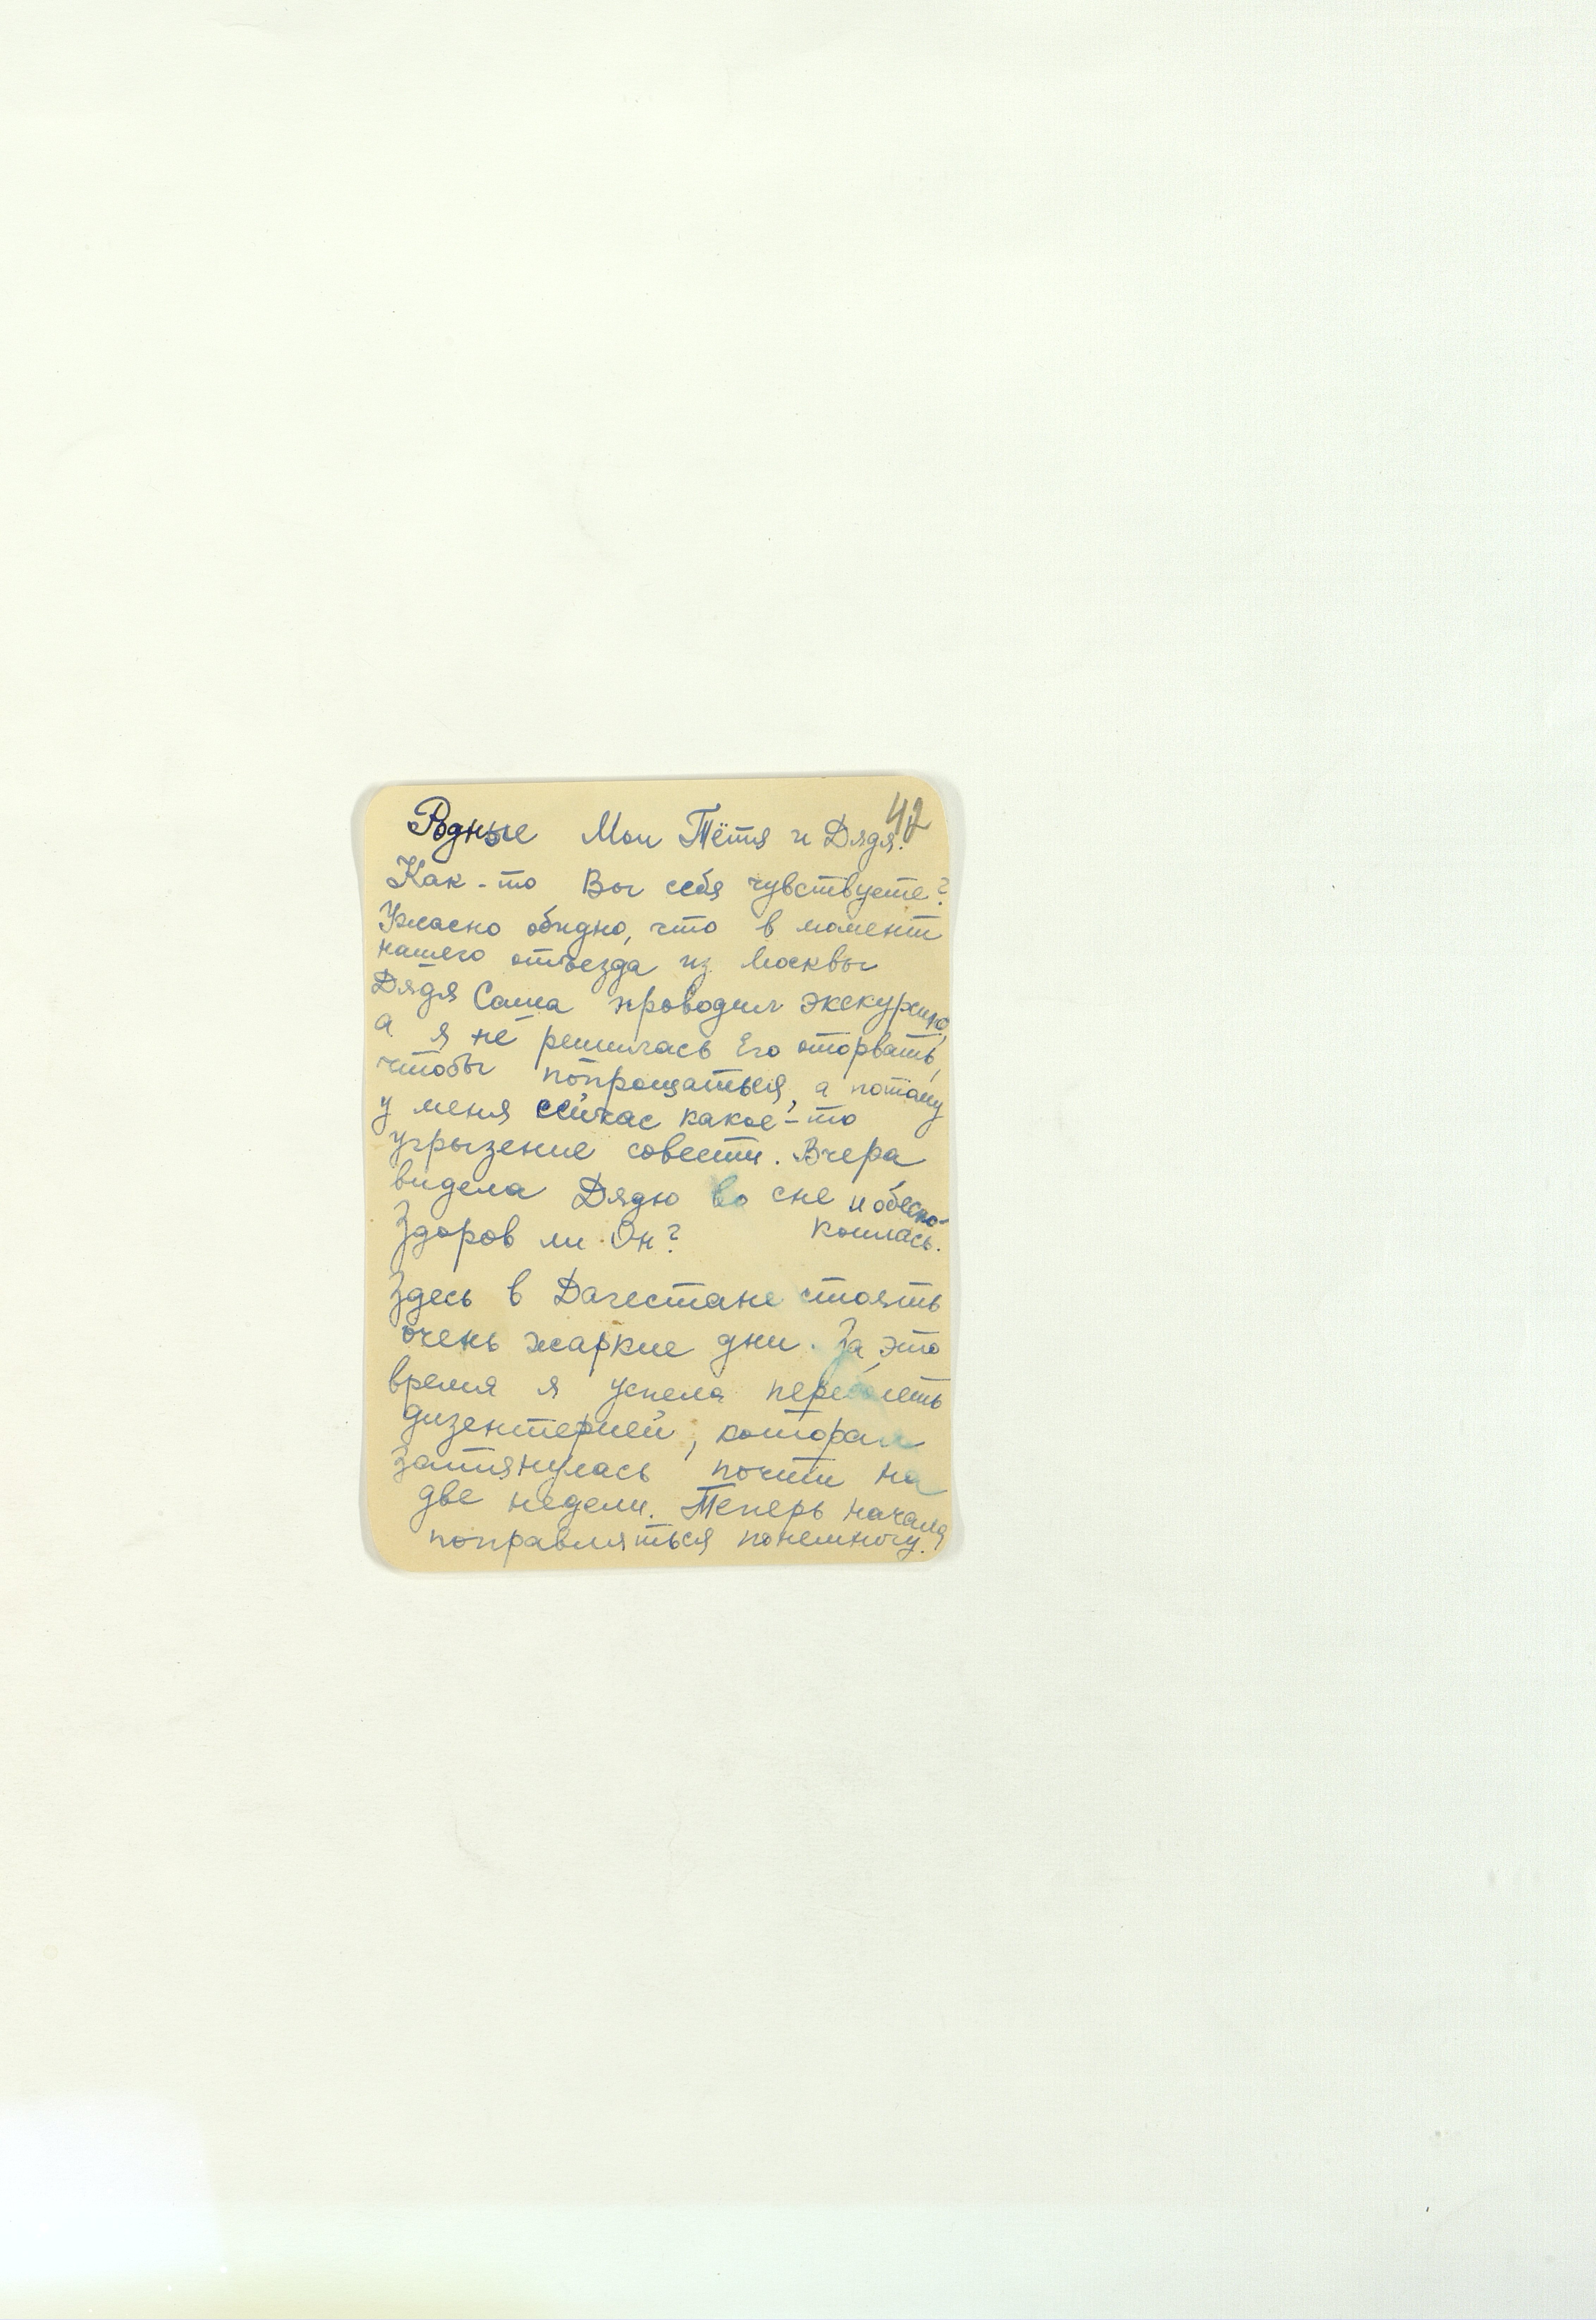 42
Родные Мои Тётя и Дядя.
Как-то Вы себя чувствуете?
Ужасно обидно, что в момент
нашего отъезда из Москвы
Дядя Саша проводил экскурсию,
а я не решилась Его оторвать,
чтобы попрощаться, а потому
у меня сейчас какое-то
угрызение совести. Вчера
видела Дядю во сне и обеспо-
Здоров ли Он? коилась.
Здесь в Дагестане стоять
очень жаркие дни. За это
время я успела переболеть
дизентерией, которая
затянулась почти на
две недели. Теперь начала
поправляться понемногу.